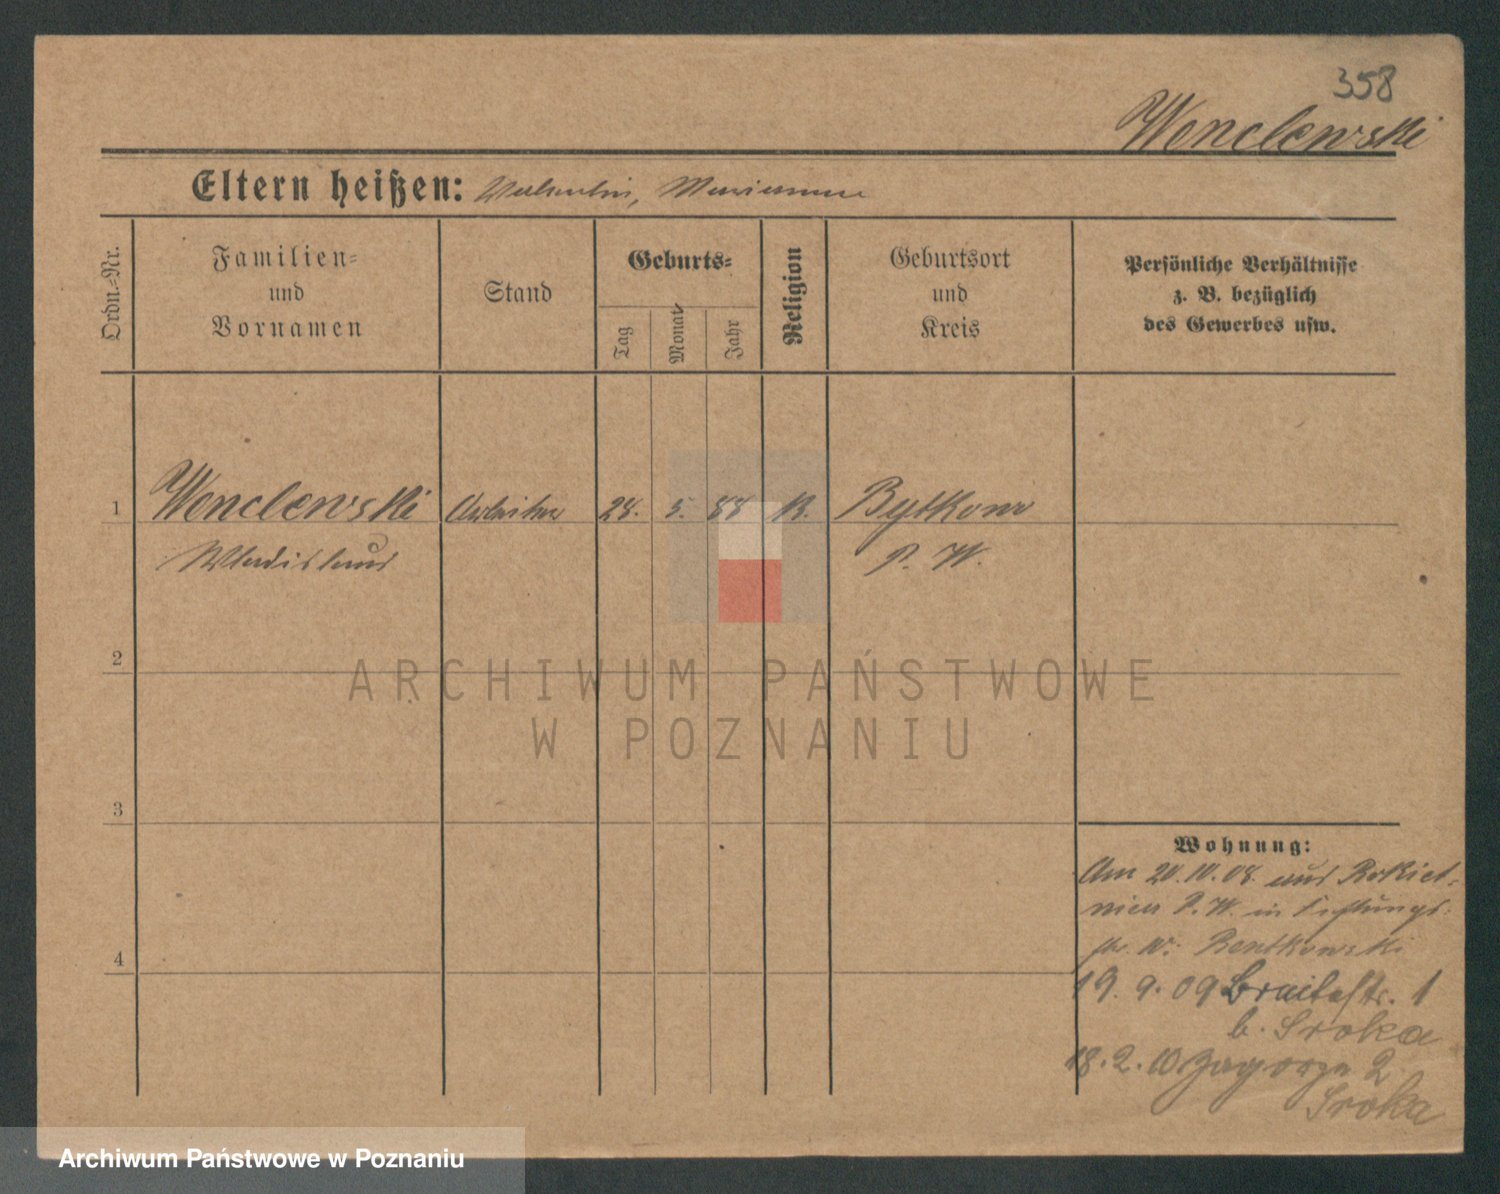 358
Wenclewski
Eltern heißen: Valentin, Marianna
Ordn.-Nr.
Familien-
und
Vornamen
Stand
Geburts-
Tag
Monat
Jahr
Religion
Geburtsort
und
Kreis
Persönliche Verhältnisse
z. B. bezüglich
des Gewerbes usw.
1
Wenclewski
Arbeiter
28.
5.
88
K.
Bytkowo
Wladislaus
P. W.
2
3
4
Wohnung:
Am 20.10.08. aus Rokiet-
nica P. W. in
b. Rentkowski
19. 9. 09 Breitestr. 1
b. Sroka
18. 2. 10 Zagorze 2
Sroka
ARCHIWUM PAŃSTWOWE
W POZNANIU
Archiwum Państwowe w Poznaniu